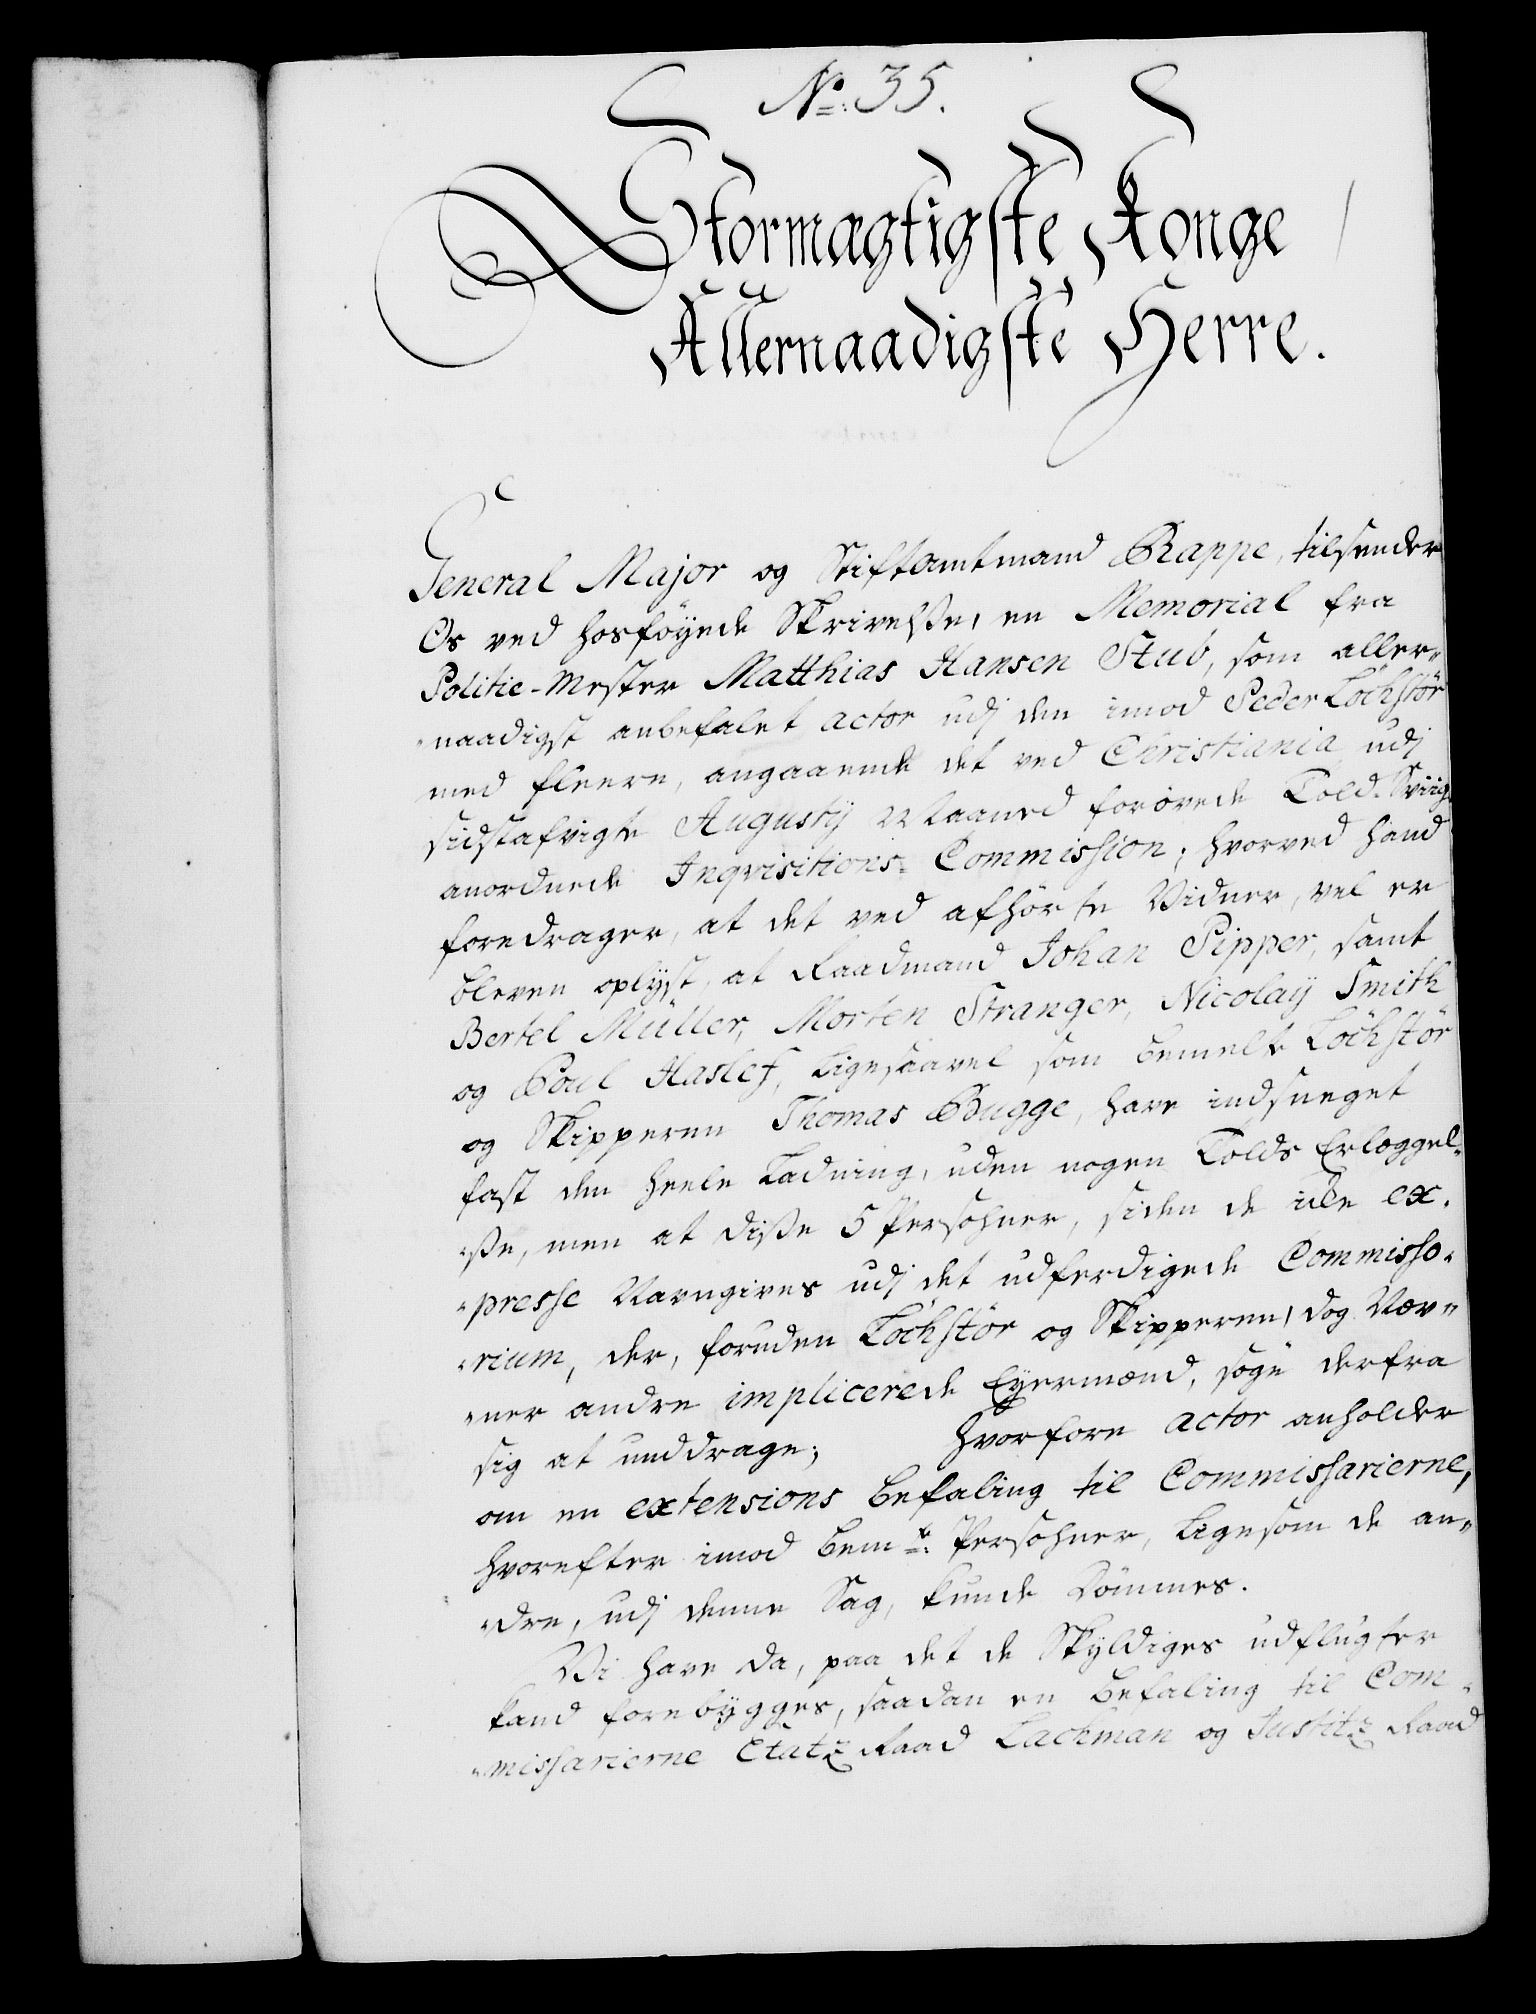 No: 35.
Stormægtigste Konge
Allernaadigste Herre.
General Major og Stiftamtmand Rappe, tilsender
Os ved hosføyede Skrivelße, en Memorial fra
Politie-Mester Matthias Hansen Stub, som aller„
„naadigst anbefalet actor udj den imod Peder Löchstör
med fleere, angaaende det ved Christiania udj
sidstafvigte Augustij Maaned forövede Told-Sviig
anordnede Inqvisitions-Commission; hvorved hand
foredrager, at det ved afhörte Vidner, vel er
bleven oplyst, at Raadmand Johan Pipper, samt
Bertel Müller, Morten Stranger, Nicolaij Smith
og Poul Haslef, ligesaavel som bemelte Löchstör
og Skipperen Thomas Bugge, have indsneget
fast den heele Ladning, uden nogen Tolds Erlæggel„
„ße, men at diße 5 Persohner, siden de icke ex„
„presse Navngives udj det udferdigede Commisso„
„rium, der, foruden Löchstör og Skipperen, dog Næv„
„ner andre implicerede Eyermænd, søge derfra
sig at unddrage; Hvorfore actor anholder
om en extensions Befaling til Commissarierne,
hvorefter imod bemte: Persohner, ligesom de an„
„dre, udj denne Sag, kunde Dömmes.
Vi have da, paa det de Skyldiges udflugter
kand forebygges, saadan en Befaling til Com„
„missarierne Etatz Raad Lachman og Justitz Raad